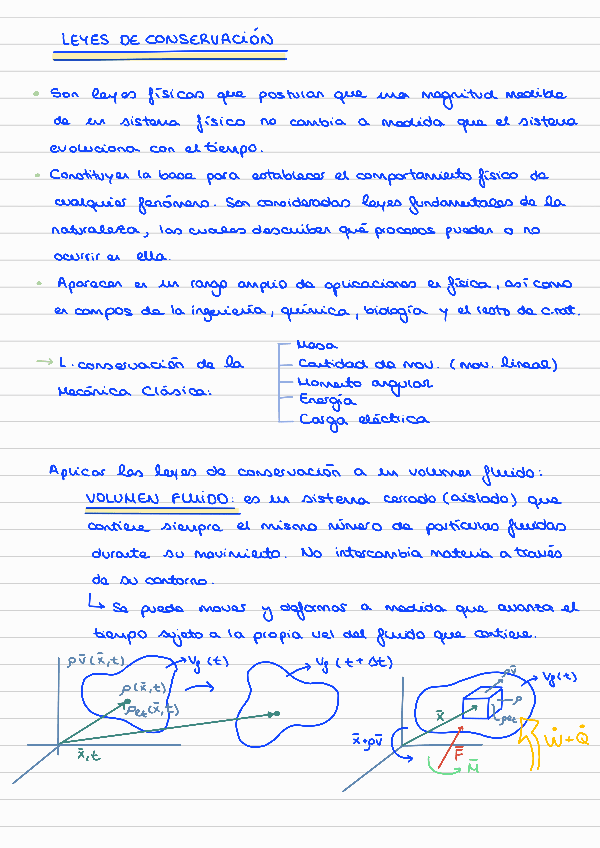 LEYES DE CONSERVACIÓN
• Son leyes físicas que postulan que una magnitud medible
de un sistema físico no cambia a medida que el sistema
evoluciona con el tiempo.
• Constituyen la base para establecer el comportamiento físico de
cualquier fenómeno. Son consideradas leyes fundamentales de la
naturaleza, las cuales describen qué procesos pueden o no
ocurrir en ella.
• Aparecen en un rango amplio de aplicaciones en física, así como
en campos de la ingeniería, química, biología y el resto de c.nat.
→ L. conservación de la
Mecánica Clásica:
Masa
Cantidad de mov. (mov. lineal)
Momento angular
Energía
Carga eléctrica
Aplicar las leyes de conservación a un volumen fluido:
VOLUMEN FLUIDO: es un sistema cerrado (aislado) que
contiene siempre el mismo número de partículas fluidas
durante su movimiento. No intercambia materia a través
de su contorno.
↳ Se puede mover y deformar a medida que avanza el
tiempo sujeto a la propia vel del fluido que contiene.
ρv̄(x̄,t)
Vf(t)
ρ(x̄,t)
ρet(x̄,t)
x̄,t
Vf(t+Δt)
ρv̄
Vf(t)
ρ
ρet
x̄
x̄∧ρv̄
F̄
M̄
Ẇ+Q̇